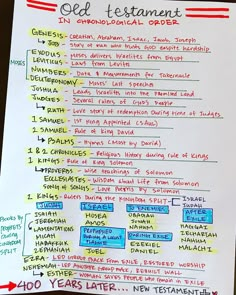 Old testament
IN CHRONOLOGICAL ORDER
GENESIS - Creation, Abraham, Isaac, Jacob, Joseph
JOB - Story of man who trusts God despite hardship
MOSES
EXODUS - Moses delivers Israelites from Egypt
LEVITICUS - Laws from Levites
NUMBERS - Data & Measurements for Tabernacle
DEUTERONOMY - Moses' Last Speeches
JOSHUA - Leads Israelites into the Promised Land
JUDGES - Several rulers of God's People
RUTH - Love story of redemption during time of Judges
1 SAMUEL - 1st King Appointed (Saul)
2 SAMUEL - Rule of King David
PSALMS - Hymns (Most by David)
1 & 2 CHRONICLES - Religious history during rule of Kings
1 KINGS - Rule of King Solomon
PROVERBS - Wise teachings of Solomon
ECCLESIASTES - Wisdom about Life from Solomon
Song of Solomon - Love Poems by Solomon
2 KINGS - Rulers During the Kingdom SPLIT
ISRAEL
JUDAH
Books by Prophets during the Kingdom SPLIT
JUDAH
ISAIAH
JEREMIAH
LAMENTATIONS
MICAH
HABAKKUK
ZEPHANIAH
ISRAEL
HOSEA
AMOS
JOEL
TO ENEMIES
OBADIAH
JONAH
NAHUM
DURING EXILE
EZEKIEL
DANIEL
AFTER EXILE
HAGGAI
ZECHARIAH
MALACHI
EZRA - LED GROUP BACK FROM EXILE, RESTORED WORSHIP
NEHEMIAH - LED ANOTHER GROUP BACK, REBUILT WALL
ESTHER - WOMAN SAVES PEOPLE WHILE IN EXILE
400 YEARS LATER... NEW TESTAMENT